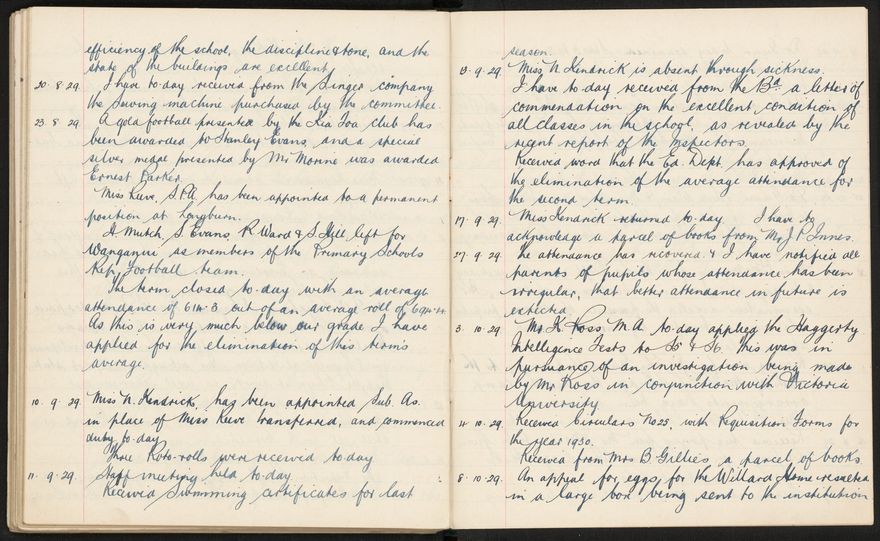 efficiency of the school, the discipline & tone, and the
state of the buildings are excellent.
20. 8. 29. I have to-day received from the Singer company
the Sewing machine purchased by the committee.
23. 8. 29 A gold football presented by the Kia Toa club has
been awarded to Stanley Evans, and a special
silver medal presented by Mr Monne was awarded
Ernest Parker.
Miss Reeve, S.P.A. has been appointed to a permanent
position at Longburn.
H. Mutch, S. Evans, R. Ward & S. Hill left for
Wanganui as members of the Primary Schools
Rep. Football team.
The term closed to-day with an average
attendance of 614.3 out of an average roll of 694.
As this is very much below our grade I have
applied for the elimination of this term's
average.
10. 9. 29. Miss N. Kendrick, has been appointed Sub. As.
in place of Miss Reeve transferred, and commenced
duty to-day.
Three Roto-rolls were received to-day
11. 9. 29. Staff meeting held to-day.
Received Swimming certificates for last
season.
13. 9. 29. Miss N Kendrick is absent through sickness.
I have to-day received from the Bd. a letter of
commendation on the excellent condition of
all classes in the school, as revealed by the
recent report of the Inspectors.
Received word that the Ed. Dept. has approved of
the elimination of the average attendance for
the second term.
17. 9. 29. Miss Kendrick returned to-day. I have to
acknowledge a parcel of books from Mr J. P. Innes.
27. 9. 29 The attendance has recovered & I have notified all
parents of pupils whose attendance has been
irregular, that better attendance in future is
expected.
3. 10. 29. Mr. K. Ross M.A. to-day applied the Haggerty
Intelligence Tests to S5 & S6. This was in
pursuance of an investigation being made
by Mr Ross in conjunction with Victoria
University.
4. 10. 29. Received circulars No 25, with Requisition Forms for
the year 1930.
Received from Mrs B. Gillies a parcel of books.
8. 10. 29. An appeal for eggs for the Willard Home resulted
in a large box being sent to the institution.